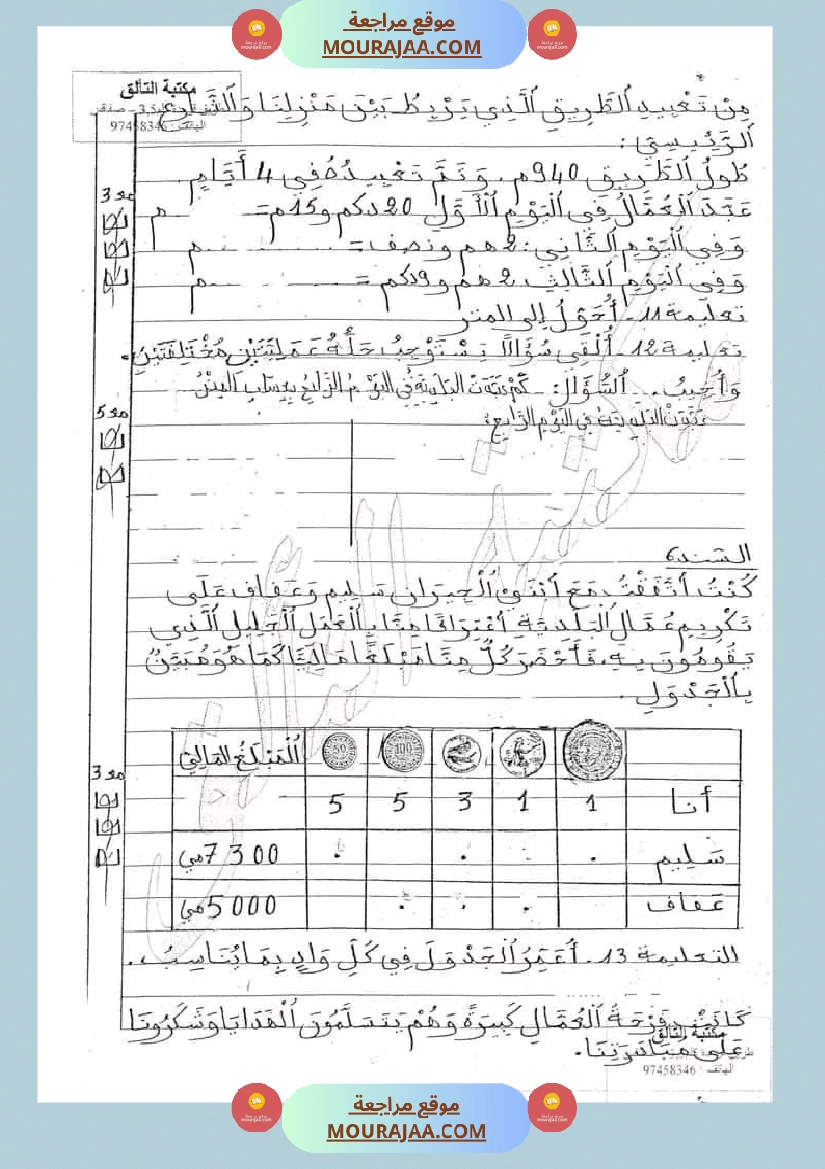 موقع مراجعة
MOURAJAA.COM
مكتبة التألق
الهاتف: 97458346
مِنْ تَعْبِيدِ الطَّرِيقِ الَّذِي يَرْبِطُ بَيْنَ مَنْزِلِنَا وَالشَّارِعِ
الرَّئِيسِيِّ :
طُولُ الطَّرِيقِ 940م. وَتَمَّ تَعْبِيدُهُ فِي 4 أَيَّامٍ.
عَبَّدَ الْعُمَّالُ فِي الْيَوْمِ الْأَوَّلِ 20دكم و15م= م
وَفِي الْيَوْمِ الثَّانِي: 2هم ونصف= ........... م
وَفِي الْيَوْمِ الثَّالِثِ 2هم و9دكم = ........... م
تعليمة 11- أُحَوِّلُ إلى المتر
تعليمة 12- أُلْقِي سُؤَالًا يَسْتَوْجِبُ حَلُّهُ عَمَلِيَّتَيْنِ مُخْتَلِفَتَيْنِ.
وَأُجِيبُ.. السُّؤَالُ: كَمْ عَبَّدَتْ الْبَلَدِيَّةُ فِي الْيَوْمِ الرَّابِعِ بِحِسَابِ الْمِتْرِ
عَبَّدَتْ الْبَلَدِيَّةُ فِي الْيَوْمِ الرَّابِعِ:
مع3
مع5
السّند6
كُنْتُ اتَّفَقْتُ مَعَ ابْنَيْ الْجِيرَانِ سَلِيم وَعَفَاف عَلَى
تَكْرِيمِ عُمَّالِ الْبَلَدِيَّةِ اِعْتِرَافًا مِنَّا بِالْعَمَلِ الْجَلِيلِ الَّذِي
يَقُومُونَ بِهِ. فَأَحْضَرَ كُلٌّ مِنَّا مَبْلَغًا مَالِيًّا كَمَا هُوَ مُبَيَّنٌ
بِالْجَدْوَلِ.
100 50 الْمَبْلَغُ الْمَالِيّ
أنا 1 1 3 5 5
سَلِيم . . . . 7300مي
عَفَاف . . . 5000مي
مع3
التعليمة 13- أُعَمِّرُ الْجَدْوَلَ فِي كُلِّ وَادٍ بِمَا يُنَاسِبُ..
كَانَتْ فَرْحَةُ الْعُمَّالِ كَبِيرَةً وَهُمْ يَتَسَلَّمُونَ الْهَدَايَا وَشَكَرُونَا
عَلَى مُبَادَرَتِنَا.
مكتبة التألق
الهاتف: 97458346
موقع مراجعة
MOURAJAA.COM